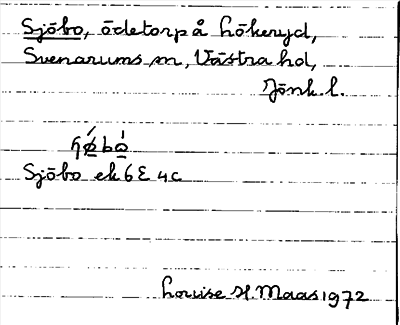 Sjöbo, ödetorp å Hökeryd,
Svenarums sn, Västra hd,
Jönk. l.
Sjöbo ek 6E 4c
Louise H. Maas 1972